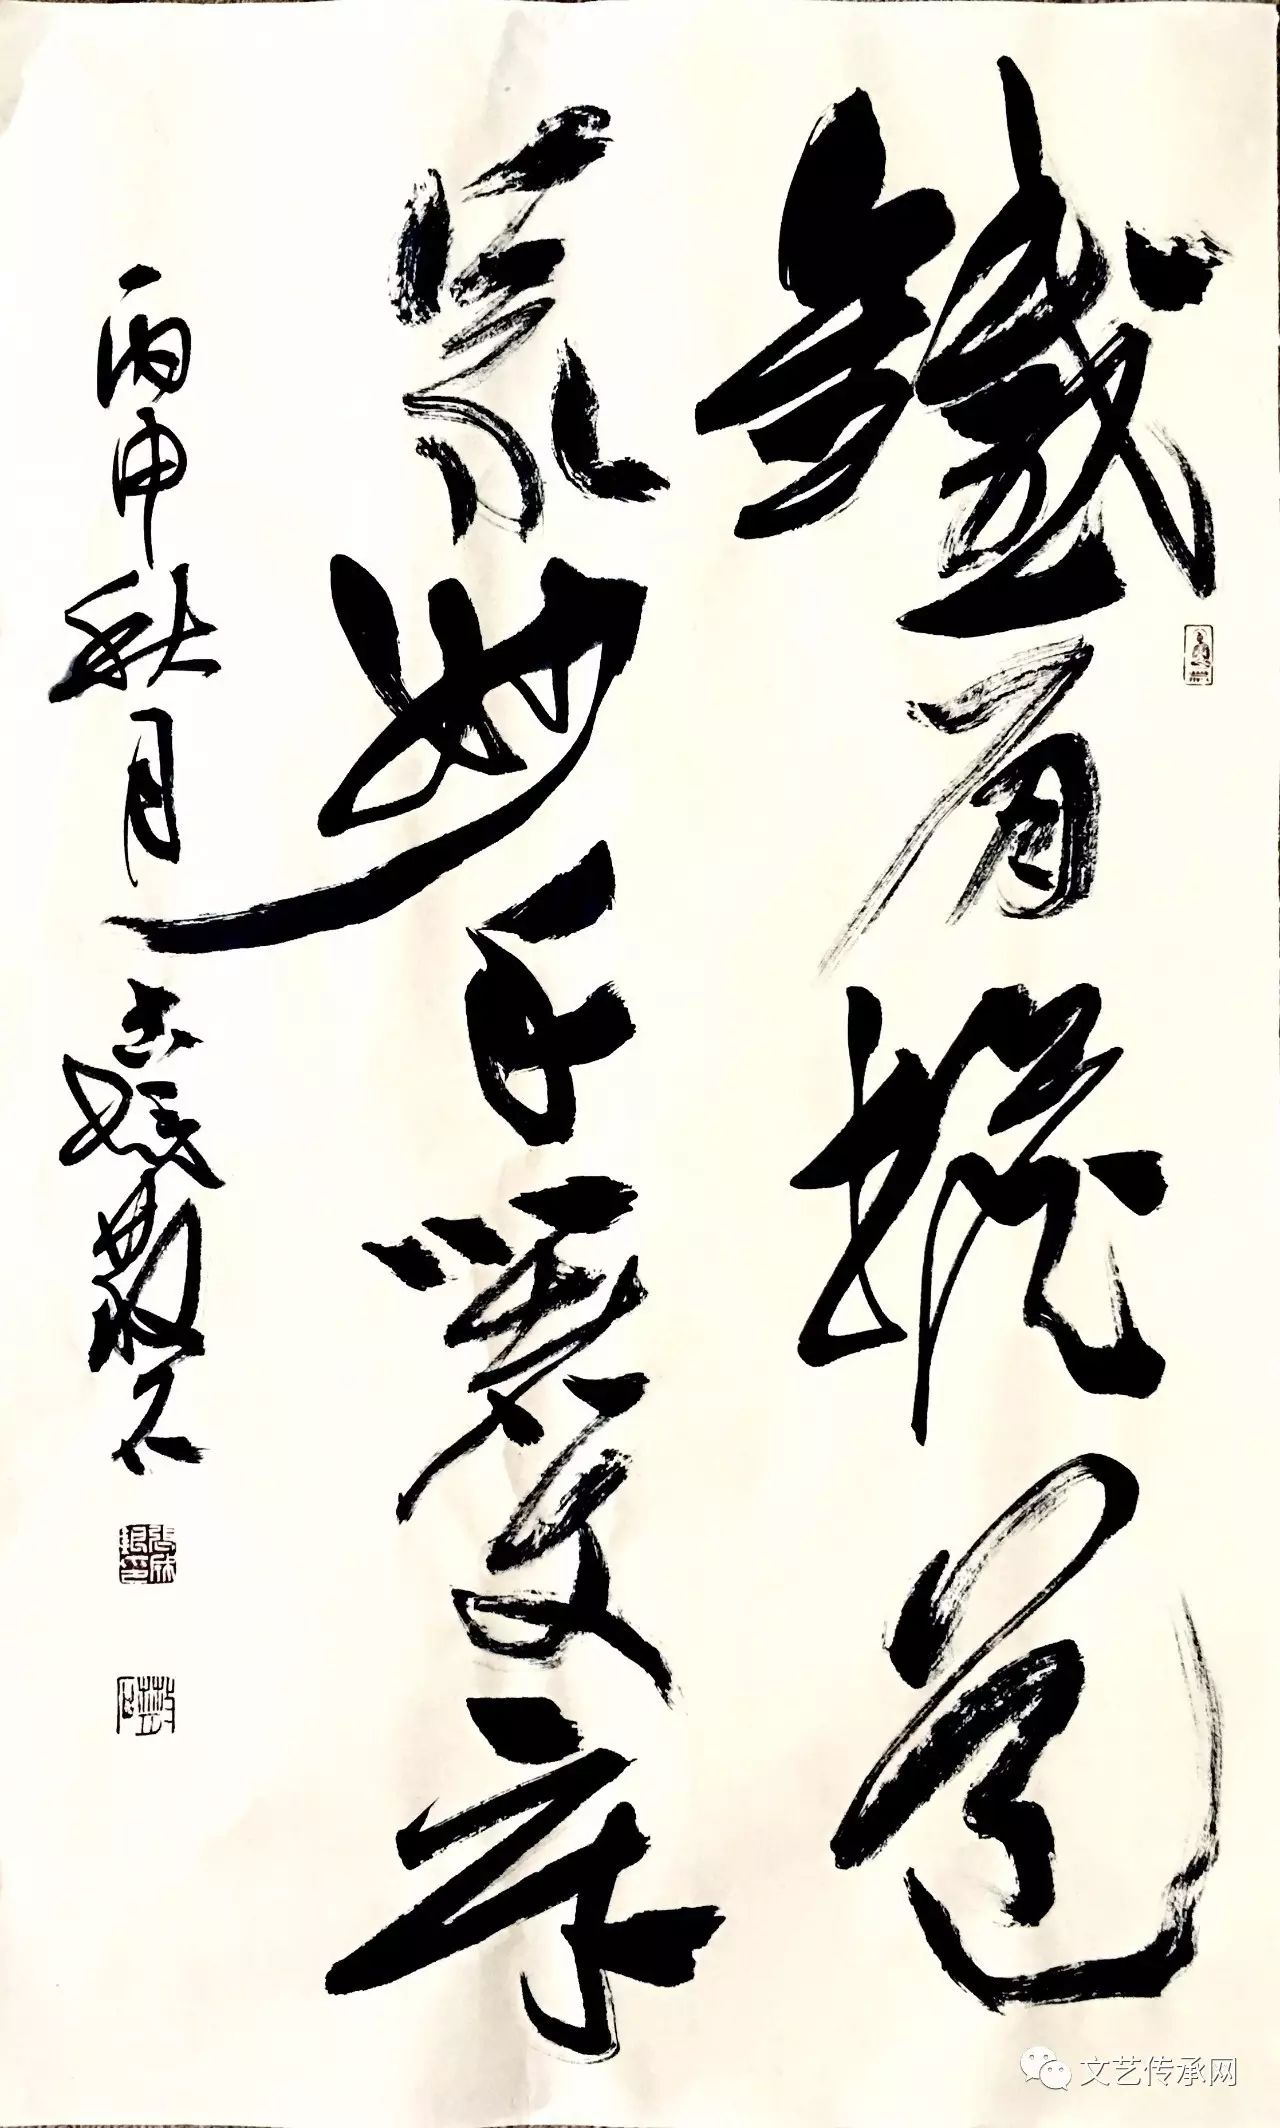 鐵肩擔道
義妙手著文章
丙申秋月
文艺传承网